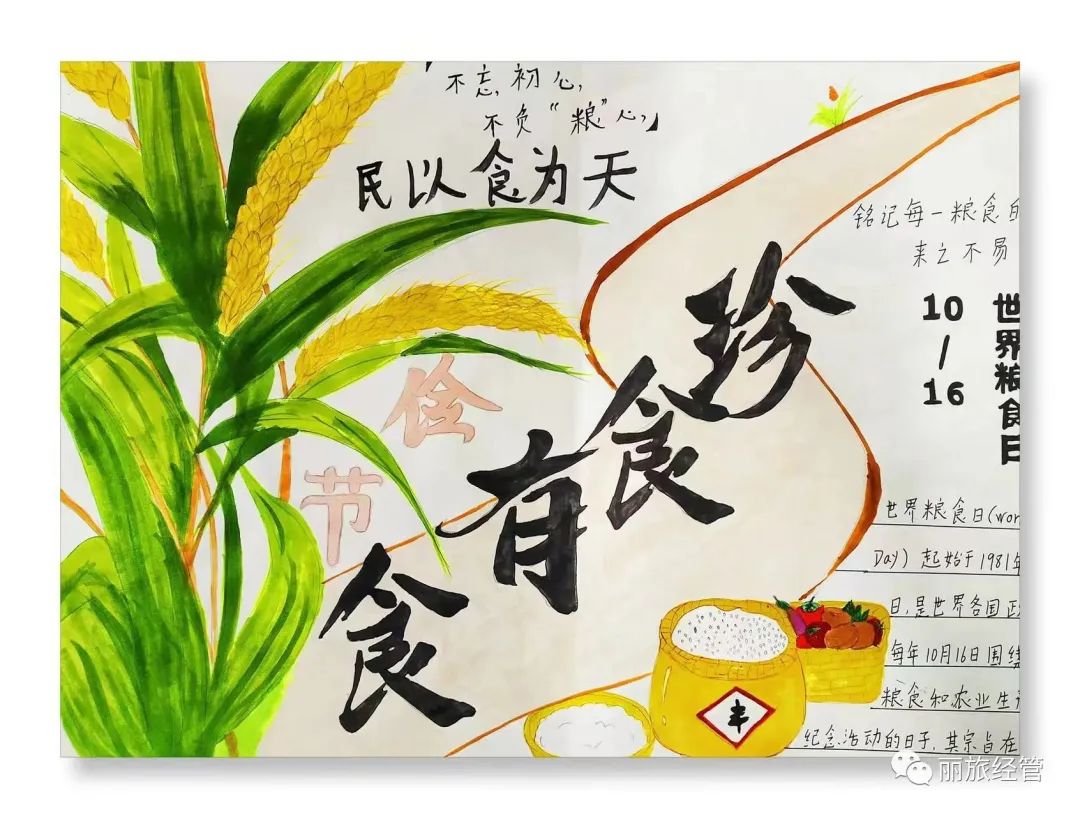 不忘初心,
不负“粮”心,」
民以食为天
珍食有食
节俭
铭记每一粮食的
来之不易
10/16
世界粮食日
世界粮食日(wor
Day) 起始于1981年
日,是世界各国政
每年10月16日围绕
粮食和农业生
纪念活动的日子,其宗旨在
丰
丽旅经管